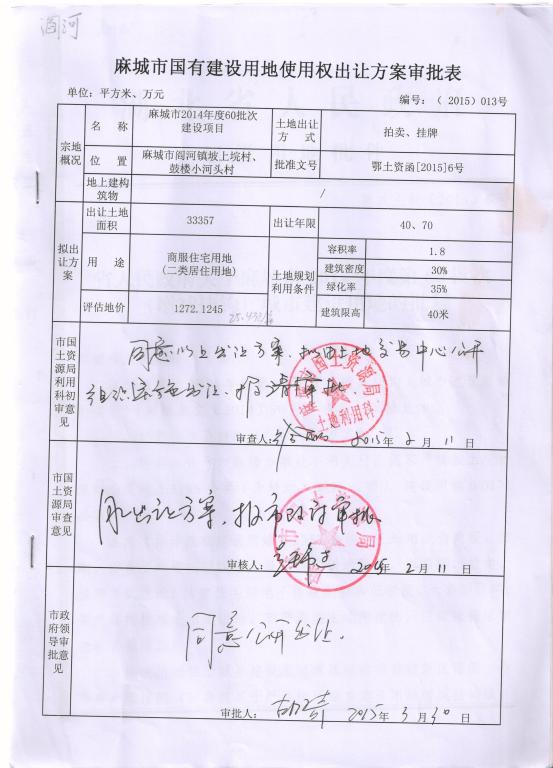 阎河
麻城市国有建设用地使用权出让方案审批表
单位：平方米、万元
编号：（2015）013号
宗地概况
名 称
麻城市2014年度60批次建设项目
土地出让方 式
拍卖、挂牌
位 置
麻城市阎河镇坡上垸村、鼓楼小河头村
批准文号
鄂土资函[2015]6号
地上建构筑物
/
拟出让方案
出让土地面积
33357
出让年限
40、70
用 途
商服住宅用地（二类居住用地）
土地规划利用条件
容积率
1.8
建筑密度
30%
绿化率
35%
评估地价
1272.1245
建筑限高
40米
市国土资源局利用科初审意见
同意以上出让方案，拟由土地交易中心公开
组织实施出让，报请审批。
麻城市国土资源局
土地利用科
审查人：
2015年2月11日
市国土资源局审查意见
同意出让方案，报市政府审批
审核人：
2015年2月11日
市政府领导审批意见
同意公开出让。
审批人：
2015年3月30日